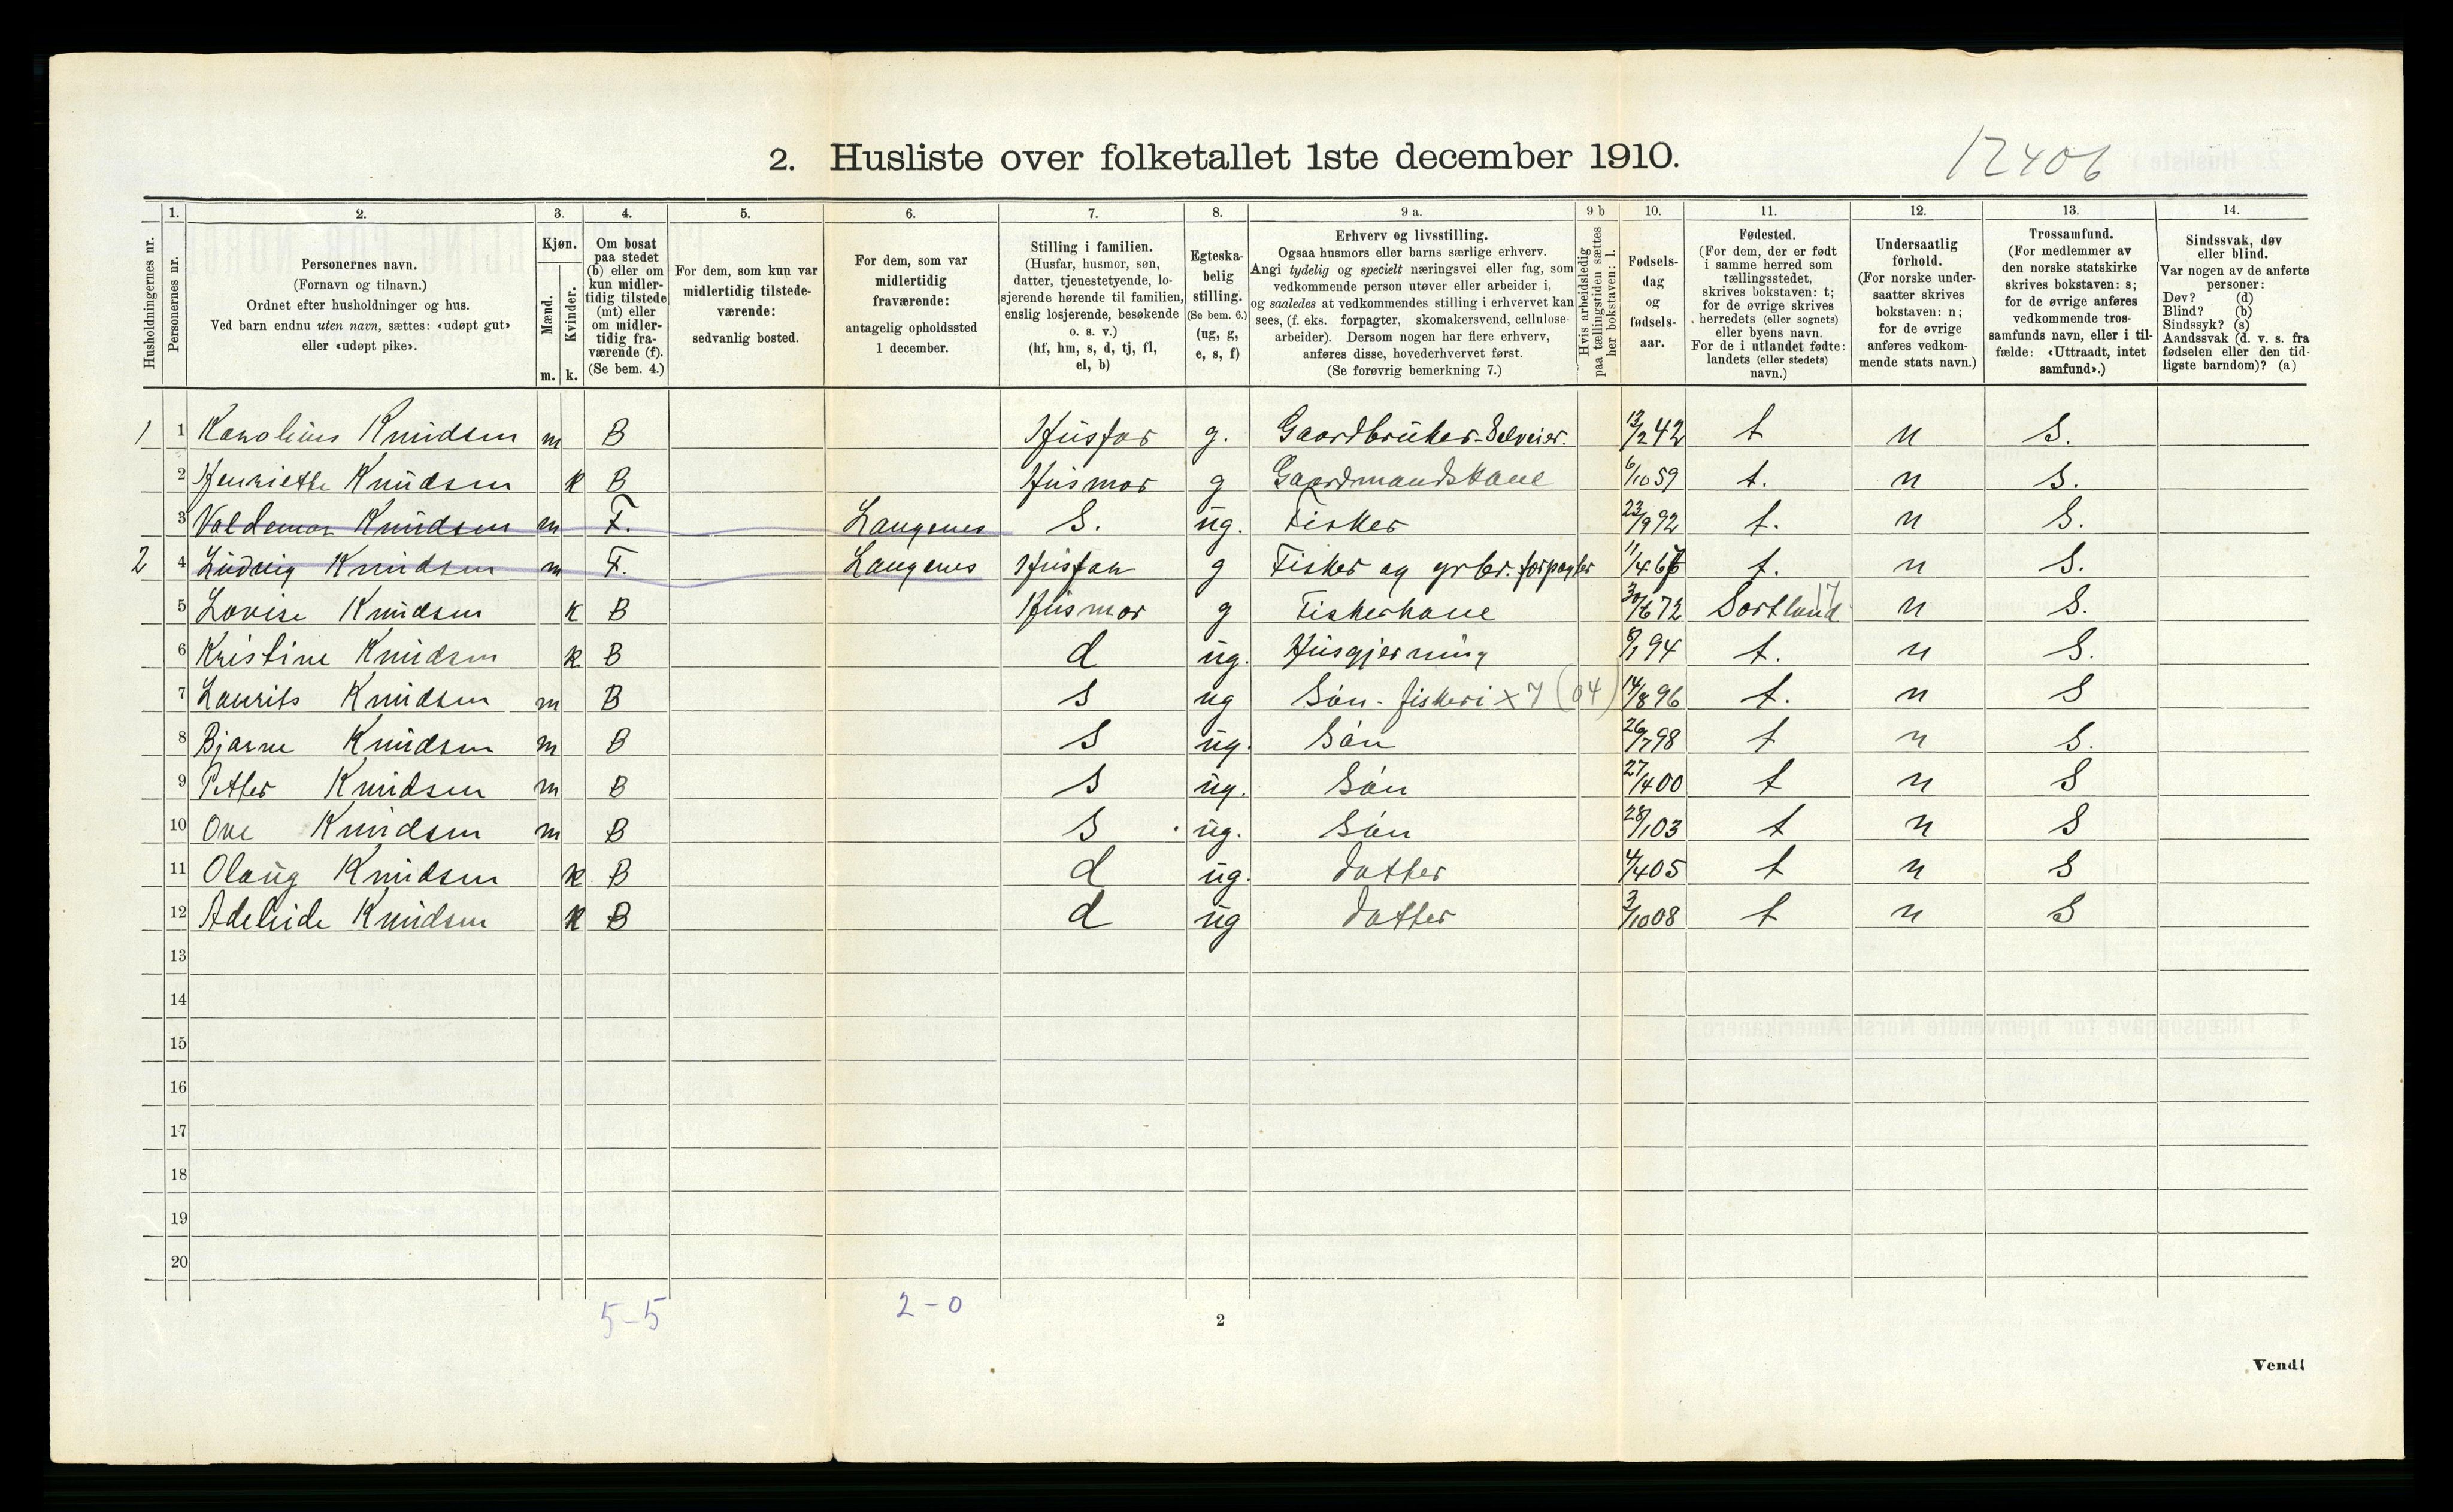 2. Husliste over folketallet 1ste december 1910.
12406
1. 2. 3. 4. 5. 6. 7. 8. 9 a. 9 b 10. 11. 12. 13. 14.
Husholdningernes nr.
Personernes nr.
Personernes navn.
(Fornavn og tilnavn.)
Ordnet efter husholdninger og hus.
Ved barn endnu uten navn, sættes: «udøpt gut»
eller «udøpt pike».
Kjøn.
Mænd.
Kvinder.
m. k.
Om bosat
paa stedet
(b) eller om
kun midler-
tidig tilstede
(mt) eller
om midler-
tidig fra-
værende (f).
(Se bem. 4.)
For dem, som kun var
midlertidig tilstede-
værende:
sedvanlig bosted.
For dem, som var
midlertidig
fraværende:
antagelig opholdssted
1 december.
Stilling i familien.
(Husfar, husmor, søn,
datter, tjenestetyende, lo-
sjerende hørende til familien,
enslig losjerende, besøkende
o. s. v.)
(hf, hm, s, d, tj, fl,
el, b)
Egteska-
belig
stilling.
(Se bem. 6.)
(ug, g,
e, s, f)
Erhverv og livsstilling.
Ogsaa husmors eller barns særlige erhverv.
Angi tydelig og specielt næringsvei eller fag, som
vedkommende person utøver eller arbeider i,
og saaledes at vedkommendes stilling i erhvervet kan
sees, (f. eks. forpagter, skomakersvend, cellulose-
arbeider). Dersom nogen har flere erhverv,
anføres disse, hovederhvervet først.
(Se forøvrig bemerkning 7.)
Hvis arbeidsledig
paa tællingstiden sættes
her bokstaven: l.
Fødsels-
dag
og
fødsels-
aar.
Fødested.
(For dem, der er født
i samme herred som
tællingsstedet,
skrives bokstaven: t;
for de øvrige skrives
herredets (eller sognets)
eller byens navn.
For de i utlandet fødte:
landets (eller stedets)
navn.)
Undersaatlig
forhold.
(For norske under-
saatter skrives
bokstaven: n;
for de øvrige
anføres vedkom-
mende stats navn.)
Trossamfund.
(For medlemmer av
den norske statskirke
skrives bokstaven: s;
for de øvrige anføres
vedkommende tros-
samfunds navn, eller i til-
fælde: «Uttraadt, intet
samfund».)
Sindssvak, døv
eller blind.
Var nogen av de anførte
personer:
Døv? (d)
Blind? (b)
Sindssyk? (s)
Aandssvak (d. v. s. fra
fødselen eller den tid-
ligste barndom)? (a)
1 1 Karolius Knudsen m B Husfar g. Gaardbruker-Selveier. 13/2 42 t n S.
2 Henriette Knudsen k B Husmor g Gaardmandskone 6/10 59 t. n S.
3 Valdemar Knudsen m F. Langenes S. ug. Fisker 23/9 92 t. n S.
2 4 Ludvig Knudsen m F. Langenes Husfar g Fisker og grbr. forpagter 11/4 67 t. n S.
5 Lovise Knudsen k B Husmor g Fiskerkone 30/6 72 Sortland 17 n S.
6 Kristine Knudsen k B d ug. Husgjerning 8/1 94 t. n S.
7 Laurits Knudsen m B S ug Søn - fiskeri x 7 (04) 14/8 96 t. n S
8 Bjarne Knudsen m B S ug. Søn 26/7 98 t n S.
9 Petter Knudsen m B S ug. Søn 27/4 00 t n S
10 Ove Knudsen m B S ug. Søn 28/1 03 t n S
11 Olaug Knudsen k B d ug. Datter 4/4 05 t n S
12 Adeleide Knudsen k B d ug Datter 3/10 08 t n S
13
14
15
16
17
18
19
20
5-5
2-0
2
Vend!